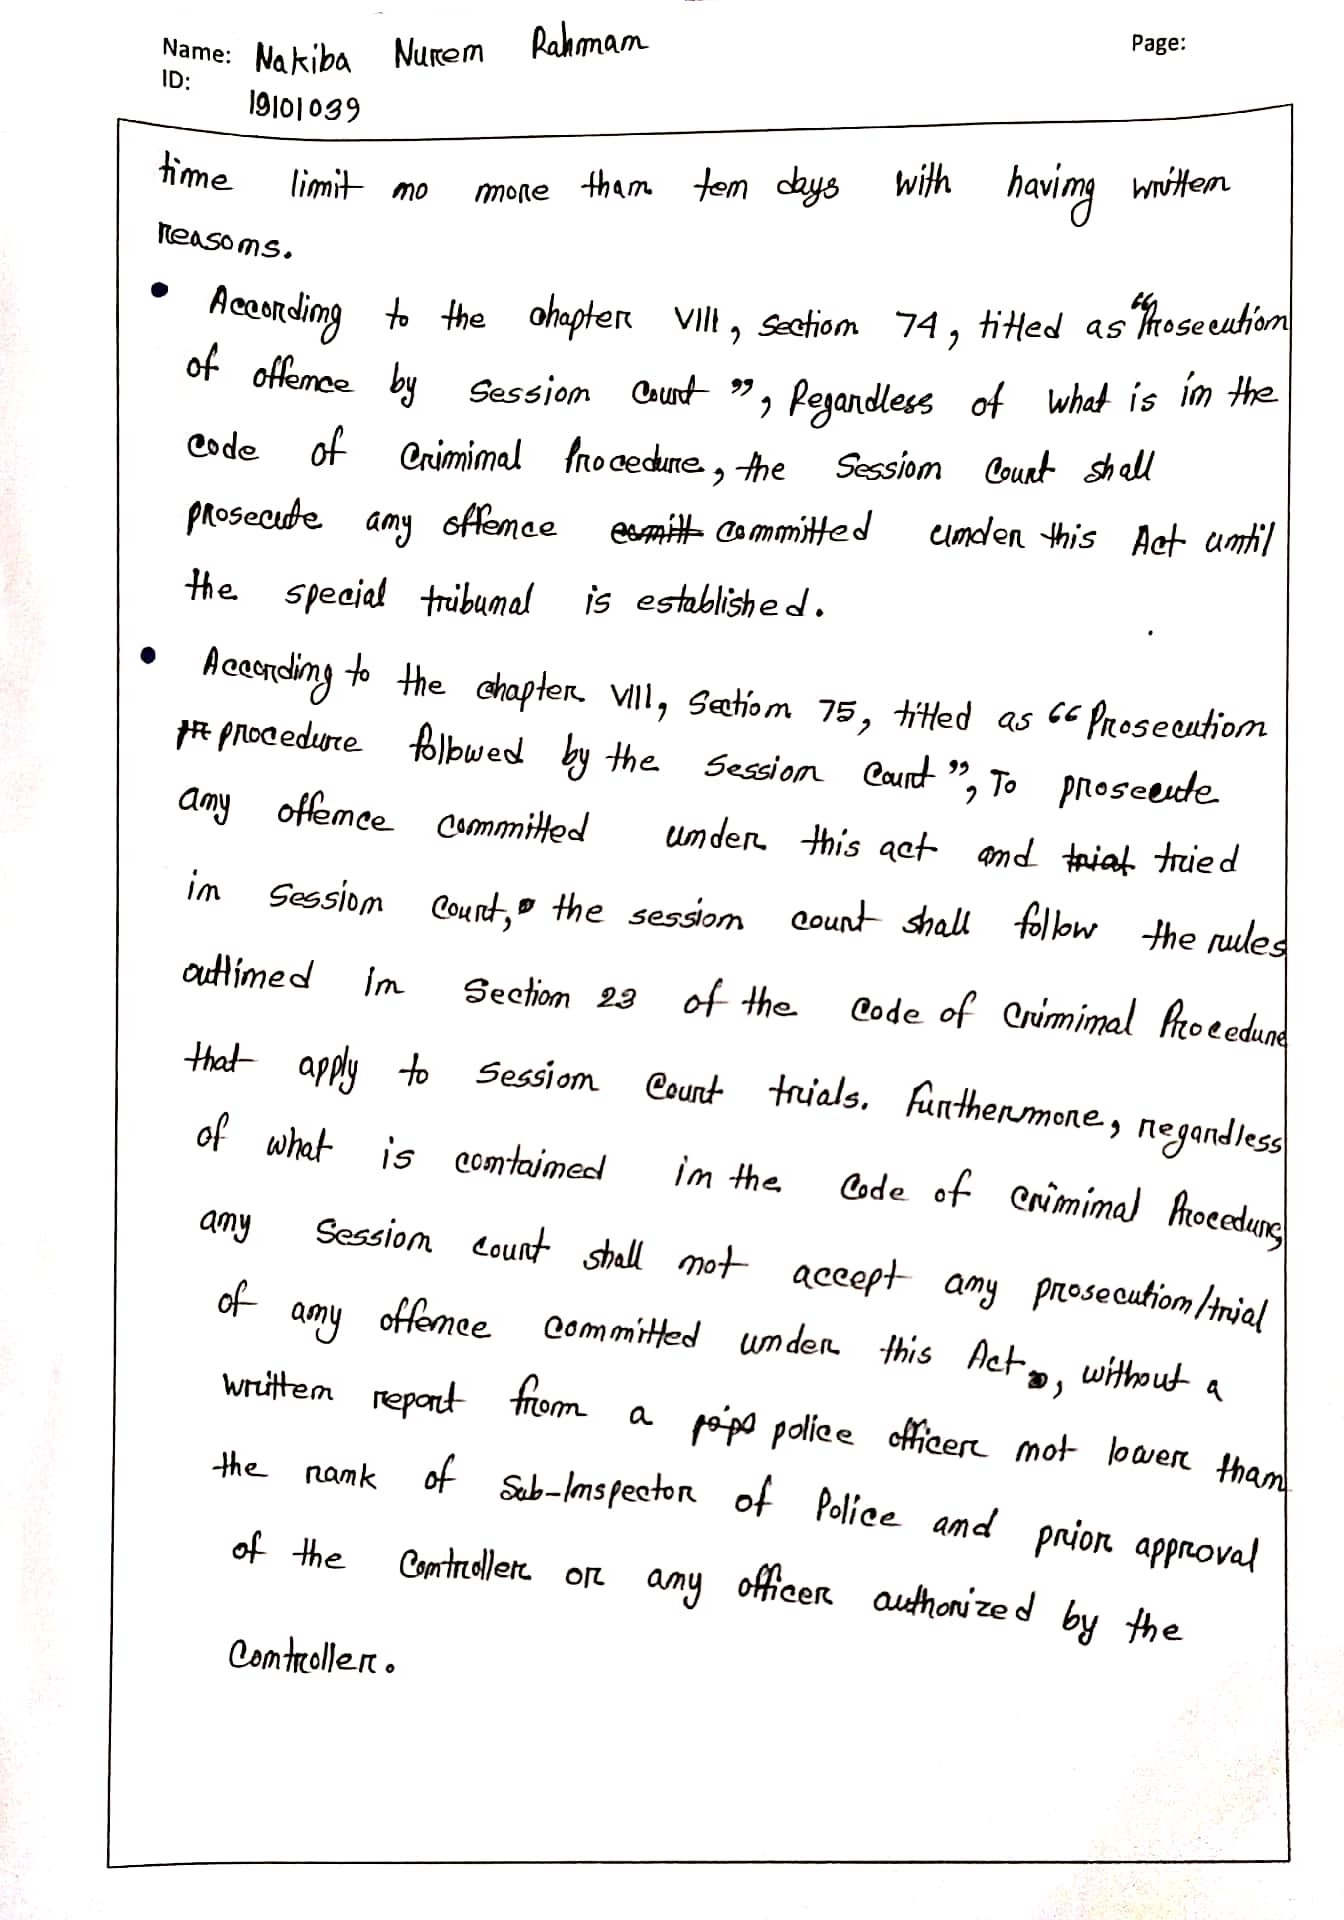 Name: Nakiba Nuren Rahman
Page:
ID: 19101039
time limit no more than ten days with having written
reasons.
• According to the chapter VIII, section 74, titled as "Prosecution
of offence by Session Court", Regardless of what is in the
code of Criminal Procedure, the Session Court shall
prosecute any offence comitt committed under this Act until
the special tribunal is established.
• According to the chapter VIII, Section 75, titled as "Prosecution
pr procedure followed by the Session Court", To prosecute
any offence committed under this act and trial tried
in Session Court, the session court shall follow the rules
outlined in Section 23 of the Code of Criminal Procedure
that apply to Session Court trials. Furthermore, regardless
of what is contained in the Code of Criminal Procedure,
any Session court shall not accept any prosecution/trial
of any offence committed under this Act, without a
written report from a police officer not lower than
the rank of Sub-Inspector of Police and prior approval
of the Controller or any officer authorized by the
Controller.